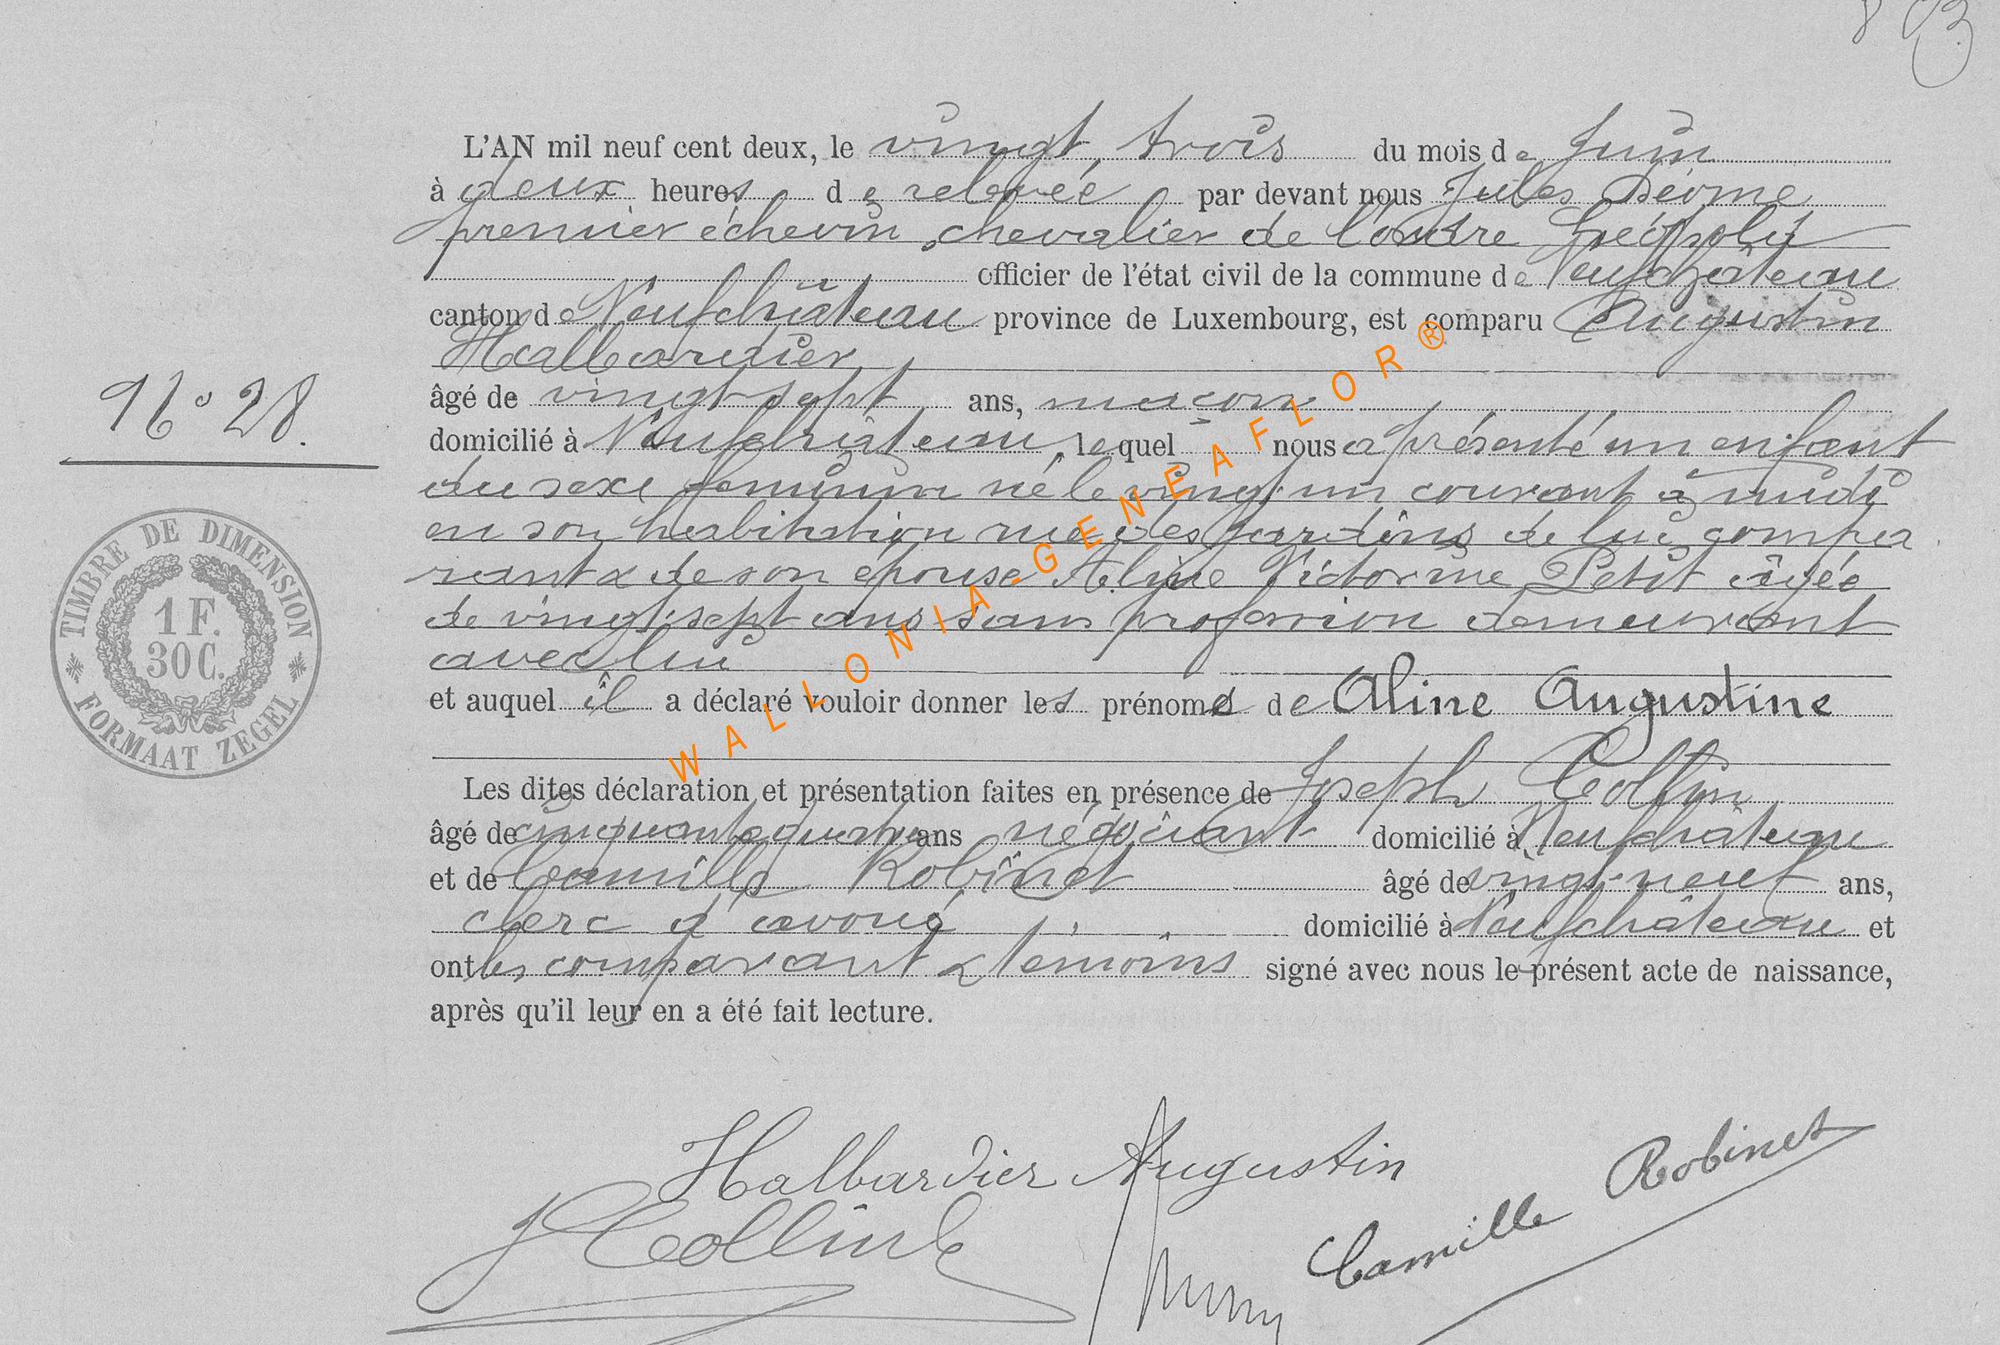 L'AN mil neuf cent deux, le vingt trois du mois de Juin
à deux heures de relevée par devant nous Jules
premier échevin, chevalier de l'ordre Léopold
officier de l'état civil de la commune de Neufchâteau
canton de Neufchâteau province de Luxembourg, est comparu Augustin
Halbardier
âgé de vingt sept ans, maçon
domicilié à Neufchâteau, lequel nous a présenté un enfant
du sexe féminin né le vingt un courant à midi
en son habitation rue des Jardins de lui compa
rant & de son épouse Aline Victorine Petit âgée
de vingt-sept ans sans profession demeurant
avec lui
et auquel il a déclaré vouloir donner les prénoms de Aline Augustine
Les dites déclaration et présentation faites en présence de Joseph Collin
âgé de cinquante quatre ans négociant domicilié à Neufchâteau
et de Camille Robinet âgé de vingt-neuf ans,
clerc d'avoué domicilié à Neufchâteau et
ont les comparant & témoins signé avec nous le présent acte de naissance,
après qu'il leur en a été fait lecture.
N° 28.
TIMBRE DE DIMENSION
1 F.
30 C.
FORMAAT ZEGEL
WALLONIA-GENEAFLOR®
Halbardier Augustin
J Collin
Camille Robinet